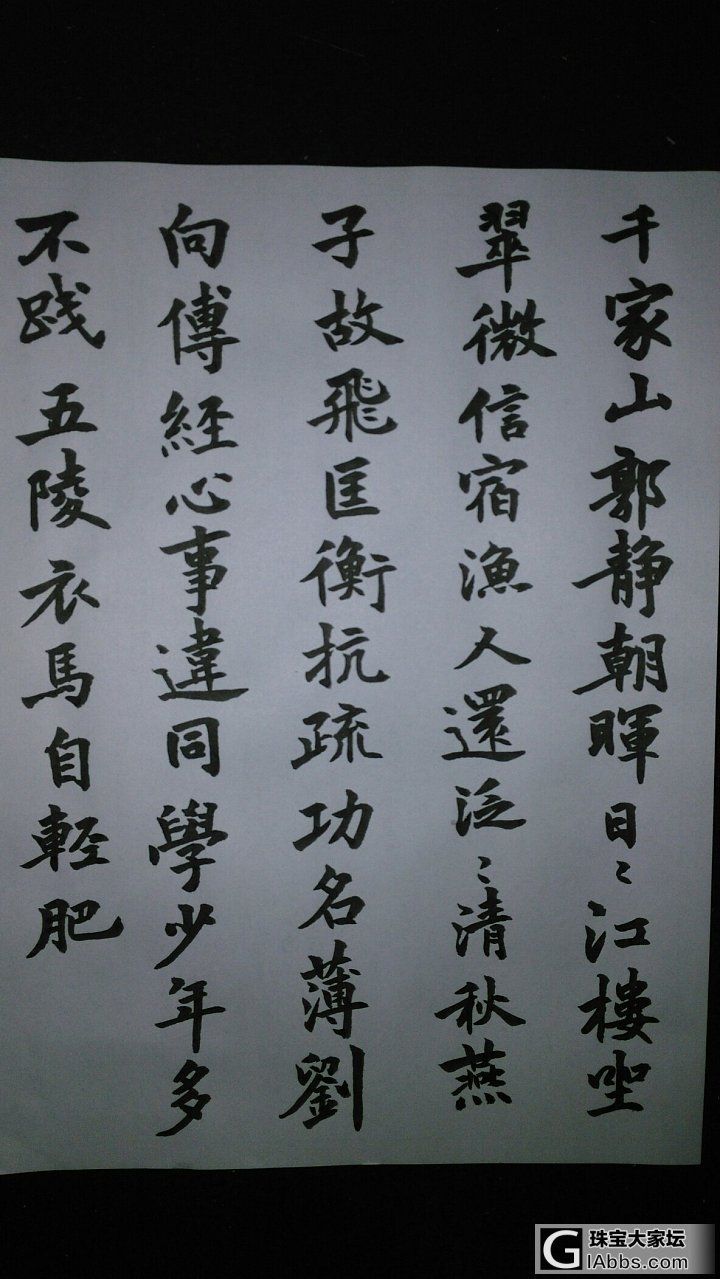 千家山郭静朝暉日〻江樓坐
翠微信宿漁人還泛〻清秋燕
子故飛匡衡抗疏功名薄劉
向傳經心事違同學少年多
不践五陵衣馬自輕肥
珠宝大家坛
GIAbbs.com